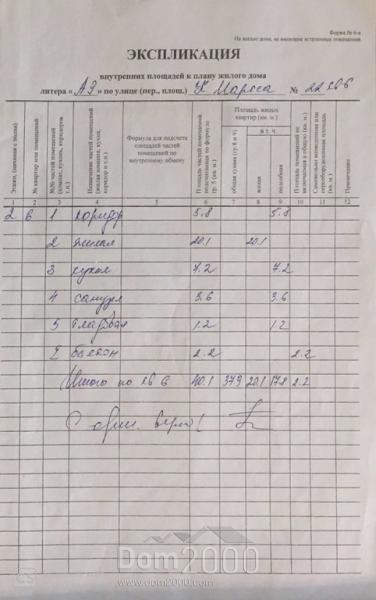 Форма № 6-а
На жилые дома, не имеющие встроенных помещений
ЭКСПЛИКАЦИЯ
внутренних площадей к плану жилого дома
литера «АЭ» по улице (пер., площ.) К Маркса № 22 кв 6
Этажи, (начиная с подвала)
№ квартир или помещений
№№ частей помещений (комнат, кухонь, коридоров и т.п.)
Назначение частей помещений (жилая комната, кухня, коридор и т.п.)
Формула для подсчета площадей частей помещений по внутреннему обмеру
Площадь частей помещений подсчитанная по формуле гр. 5 (кв. м.)
Площадь жилых квартир (кв. м.)
общая сумма (гр. 8 и 9)
в т. ч.
жилая
подсобная
Площадь помещений не включаемая в общую (кв. м.)
Самовольно возведенная или переоборудованная площадь (кв. м.)
Примечание
1 2 3 4 5 6 7 8 9 10 11 12
2 6 1 коридор 5.8 5.8
2 жилая 20.1 20.1
3 кухня 7.2 7.2
4 санузл 3.6 3.6
5 кладовая 1.2 1.2
балкон 2.2 2.2
Итого по кв 6 40.1 37.9 20.1 17.8 2.2
С ориг. верно!
Dom2000
www.dom2000.com
CS